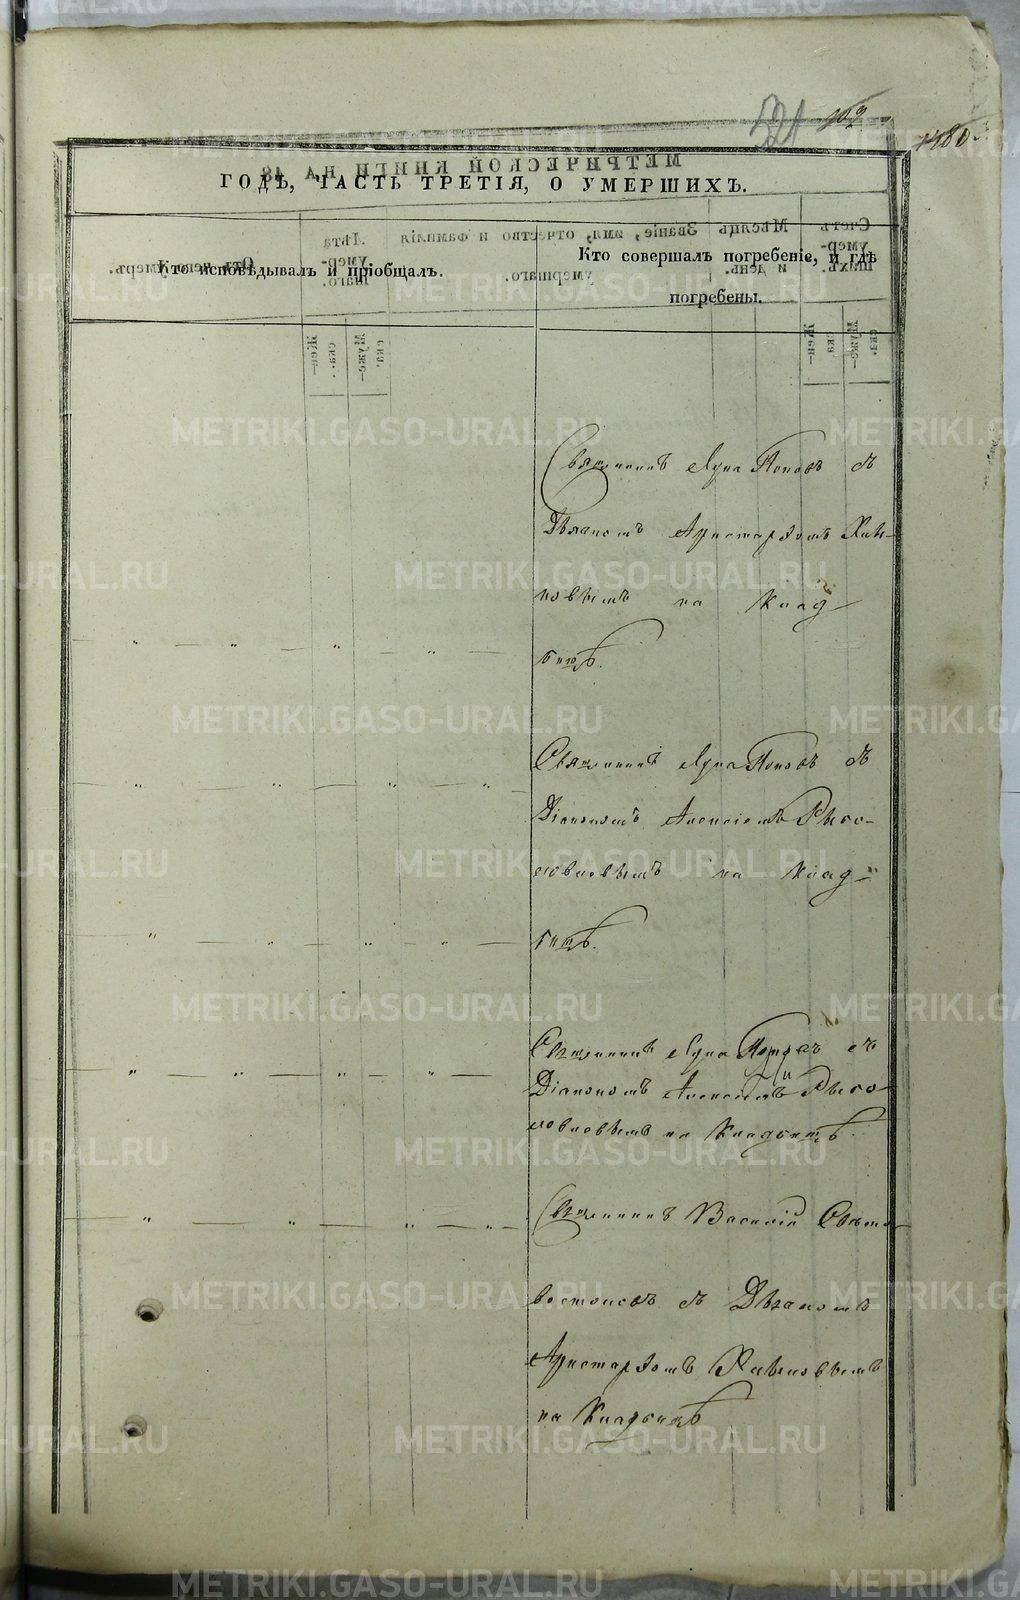 521 109
1480
ГОДѢ, ЧАСТЬ ТРЕТІЯ, О УМЕРШИХЪ.
Кто исповѣдывалъ и пріобщалъ.
Кто совершалъ погребеніе, и гдѣ
погребены.
Священникъ Лука Поповъ съ
Дьякономъ Аристархомъ
на Клад-
бищѣ.
Священникъ Лука Поповъ съ
Діакономъ Алексіемъ Рысо-
на Клад-
бищѣ.
Священникъ Лука Поповъ съ
Діакономъ Алексіемъ Рысо-
на Кладбищѣ.
Священникъ Василій Свѣто-
востоковъ съ Дьякономъ
Аристархомъ
на Кладбищѣ
METRIKI.GASO-URAL.RU